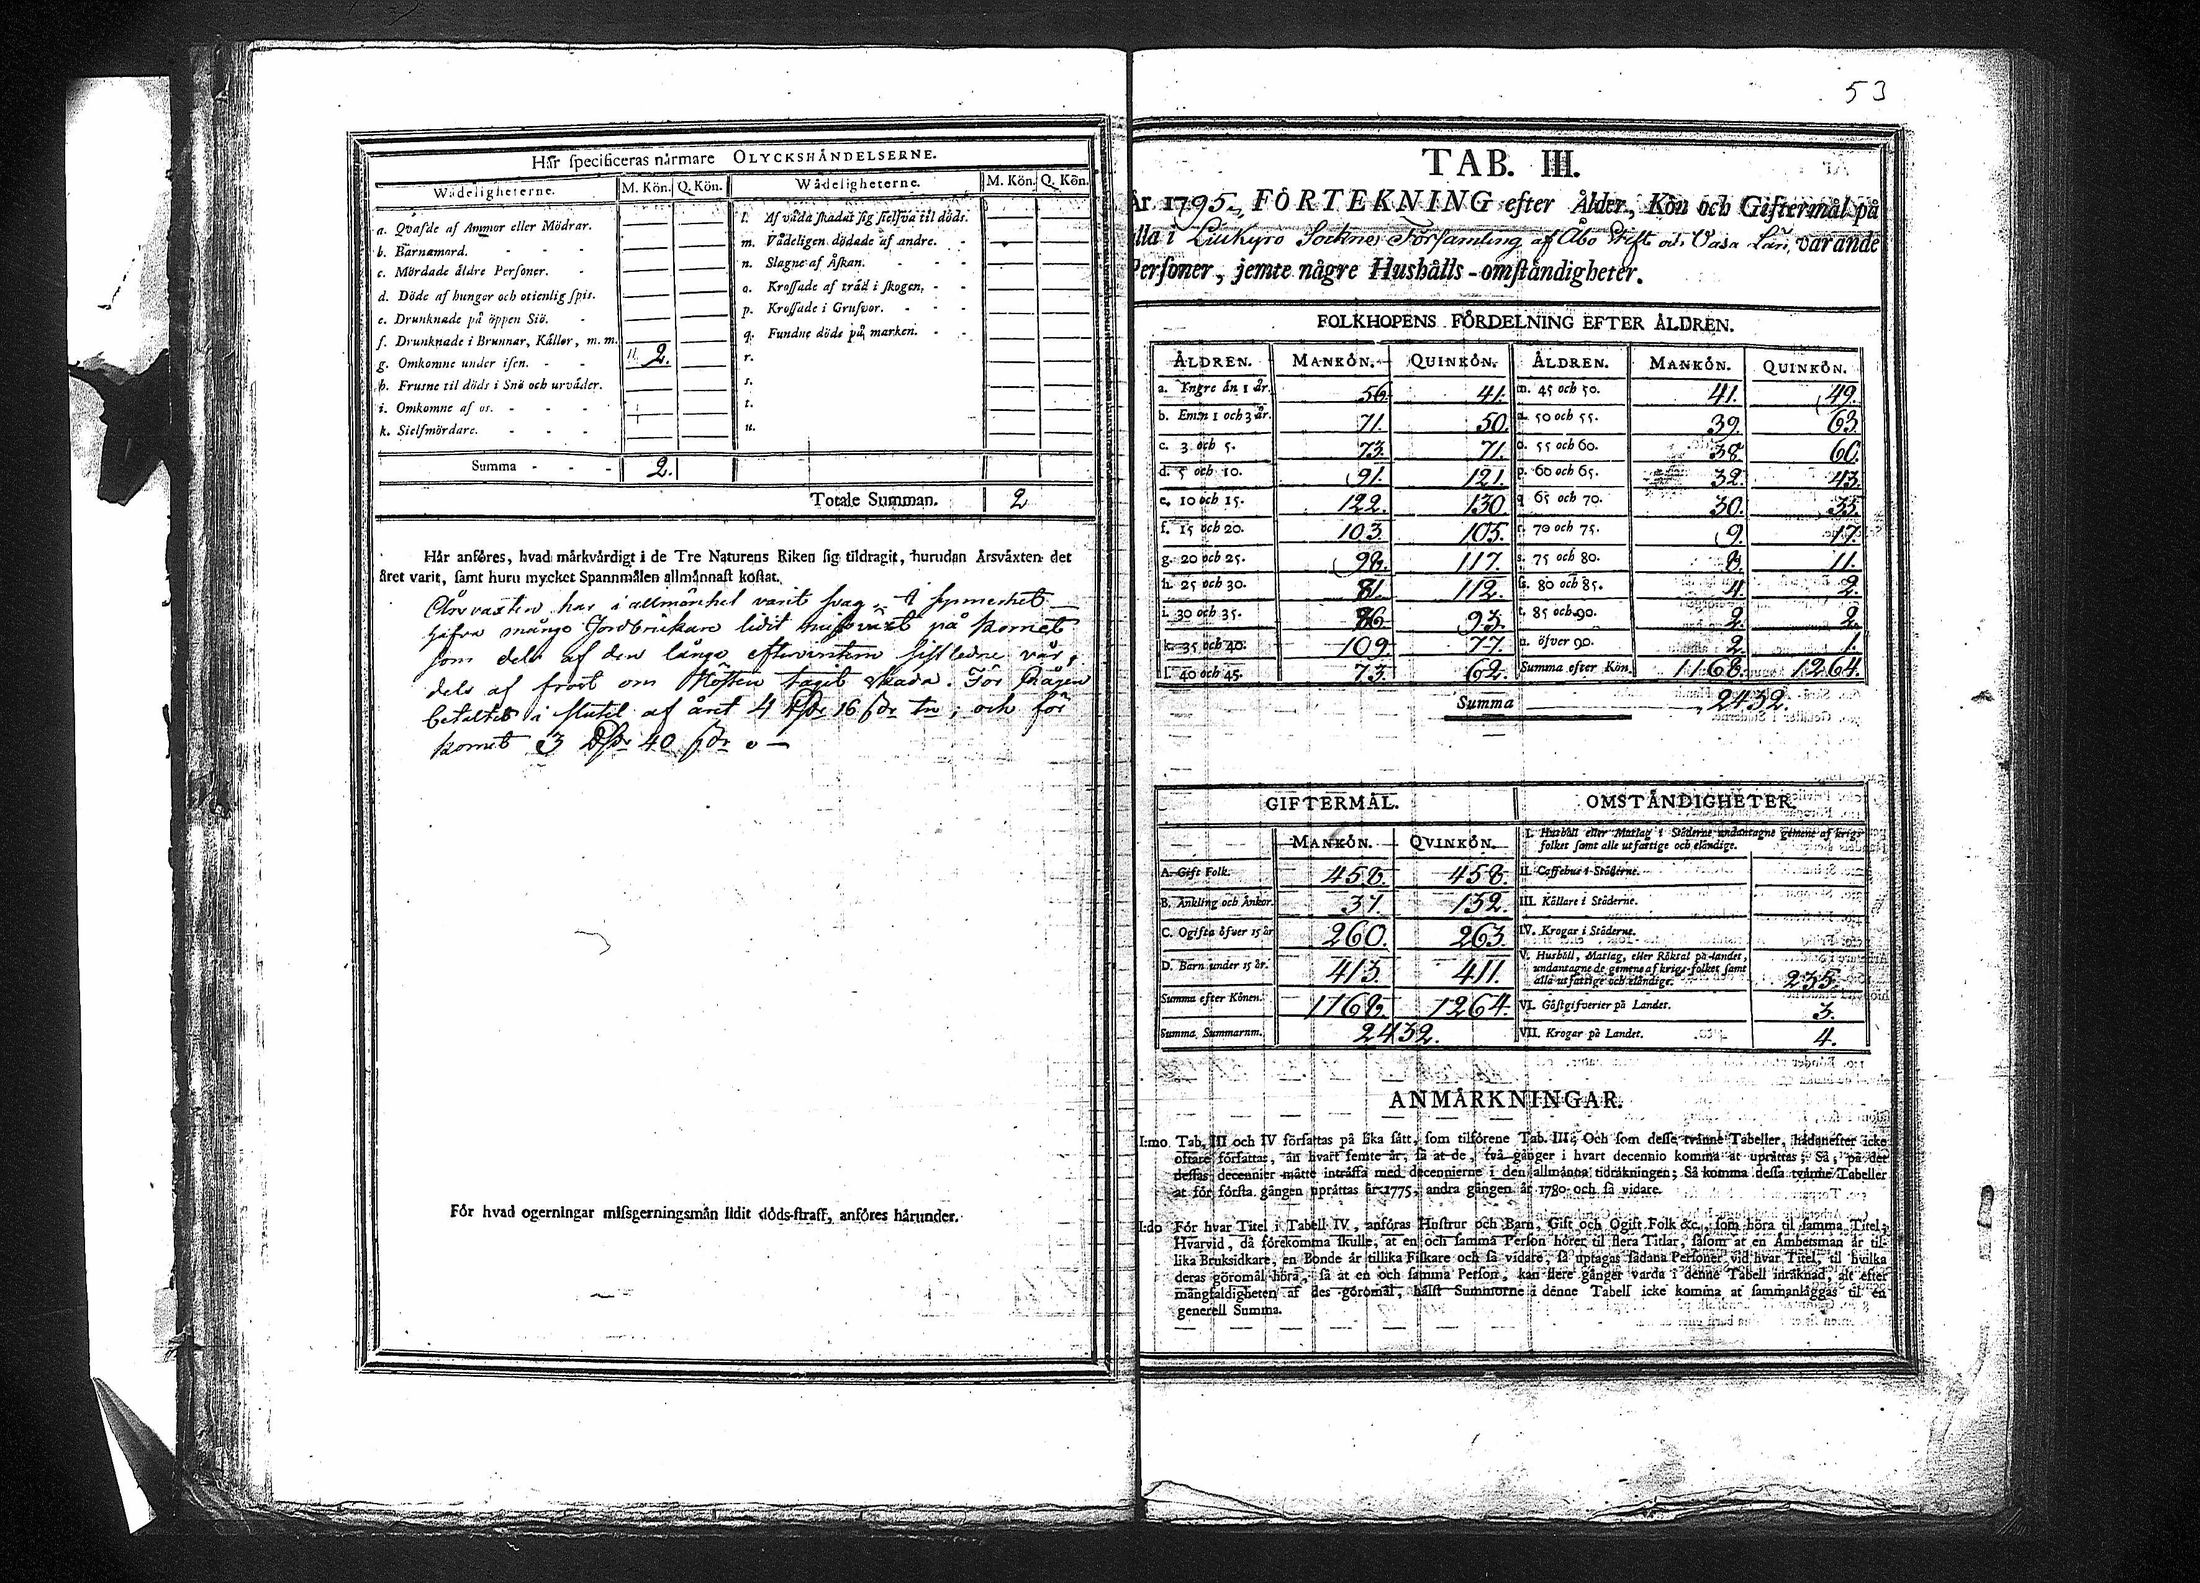 53
Hår specificeras nårmare OLYCKSHÅNDELSERNE.
Wådeligheterne. M. Kön. Q. Kön. Wådeligheterne. M. Kön. Q. Kön.
a. Qvafde af Ammor eller Mödrar.
b. Barnamord.
c. Mördade åldre Personer.
d. Döde af hunger och otienlig spis.
e. Drunknade på öppen Siö.
f. Drunknade i Brunnar, Kållor, m. m.
g. Omkomne under isen. 2.
h. Frusne til döds i Snö och urvåder.
i. Omkomne af os.
k. Sielfmördare.
l. Af våda skadat sig sielfva til döds.
m. Vådeligen dödade af andre.
n. Slagne af Åskan.
o. Krossade af tråd i skogen.
p. Krossade i Grufvor.
q. Fundne döde på marken.
r.
s.
t.
u.
Summa 2.
Totale Summan. 2
Hår anföres, hvad mårkvårdigt i de Tre Naturens Riken sig tildragit, hurudan Årsvåxten det
året varit, samt huru mycket Spannmålen allmånnast kostat.
Årsvaxten har i allmänhet varit svag, i synnerhet
hafva många Jordbrukare lidit missvaxt på Kornet
som dels af den långa eftervintern sistledne vår,
dels af frost om Hösten tagit skada. För Rågen
betaltes i slutet af året 4 Rdr 16 s tn; och för
Kornet 3 Rdr 40 s
För hvad ogerningar missgerningsmån lidit döds-straff, anföres hårunder.
TAB. III.
År 1795. FÖRTEKNING efter Ålder, Kön och Giftermål på
alla i Lillkyro Sockne Församling af Åbo Stift och Vasa Län, varande
Personer, jemte någre Hushålls-omståndigheter.
FOLKHOPENS FÖRDELNING EFTER ÅLDREN.
ÅLDREN. MANKÖN. QUINKÖN. ÅLDREN. MANKÖN. QUINKÖN.
a. Yngre ån 1 år. 56. 41. m. 45 och 50. 41. 49.
b. Emn 1 och 3 år. 71. 50. n. 50 och 55. 39. 63.
c. 3 och 5. 73. 71. o. 55 och 60. 38. 60.
d. 5 och 10. 91. 121. p. 60 och 65. 32. 43.
e. 10 och 15. 122. 130. q. 65 och 70. 30. 35.
f. 15 och 20. 103. 105. r. 70 och 75. 9. 17.
g. 20 och 25. 98. 117. s. 75 och 80. 8. 11.
h. 25 och 30. 81. 112. ß. 80 och 85. 4. 2.
i. 30 och 35. 86. 93. t. 85 och 90. 2. 2.
k. 35 och 40. 109. 77. u. öfver 90. 2. 1.
l. 40 och 45. 73. 62. Summa efter Kön. 1168. 1264.
Summa 2432.
GIFTERMÅL. OMSTÅNDIGHETER.
MANKÖN. QVINKÖN.
A. Gift Folk. 458. 458.
B. Ånkling och Ånkor. 37. 132.
C. Ogifta öfver 15 år 260. 263.
D. Barn under 15 år. 413. 411.
Summa efter Könen. 1168. 1264.
Summa Summarum. 2432.
I. Hushåll eller Matlag i Ståderne undantagne gemene af krigs-
folket samt alle utfattige och elåndige.
II. Caffehus i Ståderne.
III. Kållare i Ståderne.
IV. Krogar i Ståderne.
V. Hushåll, Matlag, eller Röktal på landet,
undantagne de gemene af krigs-folket samt
alla utfattige och elåndige. 235.
VI. Gåstgifverier på Landet. 3.
VII. Krogar på Landet. 4.
ANMÅRKNINGAR.
I:mo Tab. III och IV författas på lika sått, som tilförene Tab. III; Och som desse tvånne Tabeller, hådanefter icke
oftare författas, ån hvart femte år, så at de, två gånger i hvart decennio komma at upråttas; Så, på det
dessas decennier måtte intråffa med decennierne i den allmånna tidråkningen; Så komma dessa tvånne Tabeller
at för första gången upråttas år 1775, andra gången år 1780 och så vidare.
II:do För hvar Titel i Tabell IV, anföras Hustrur och Barn, Gift och Ogift Folk &c., som höra til samma Titel;
Hvarvid, då förekomma skulle, at en och samma Person hörer til flera Titlar, såsom at en Åmbetsman år til-
lika Bruksidkare, en Bonde år tillika Fiskare och så vidare, så uptagas sådana Personer vid hvar Titel, til hvilka
deras göromål höra, så at en och samma Person, kan flere gånger varda i denne Tabell inråknad, alt efter
mångfaldigheten af des göromål, hålst Summorne i denne Tabell icke komma at sammanlåggas til en
generell Summa.